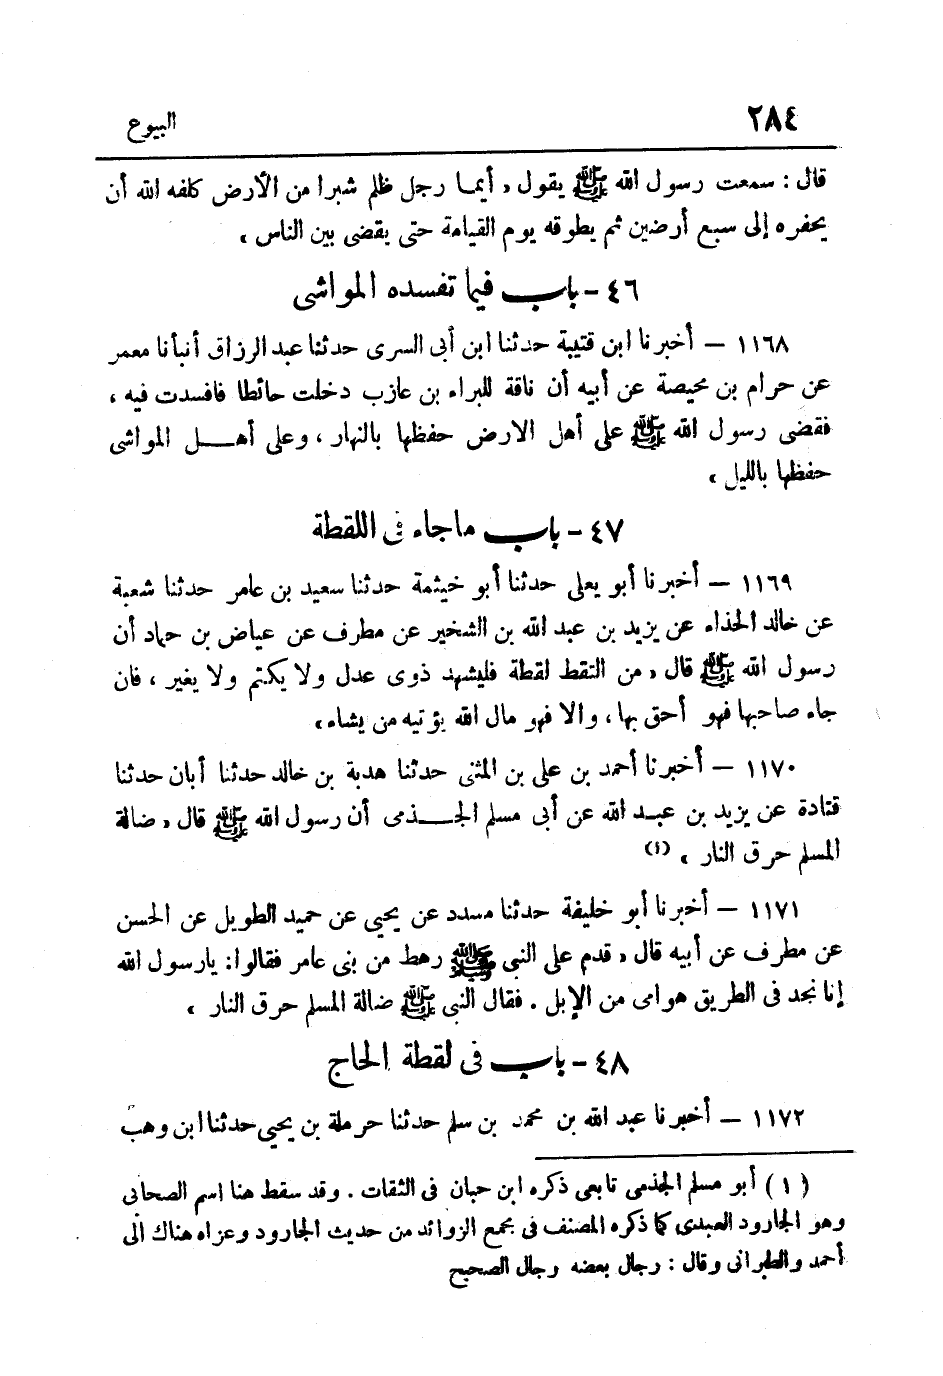 ٢٨٤
البيوع
قال : سمعت رسول الله ﷺ يقول « أيما رجل ظلم شبرا من الأرض كلفه الله أن
يحفره إلى سبع أرضين ثم يطوقه يوم القيامة حتى يقضى بين الناس »
٤٦ - باب فيما تفسده المواشى
١١٦٨ – أخبرنا ابن قتيبة حدثنا ابن أبى السرى حدثنا عبد الرزاق أنبأنا معمر
عن حرام بن محيصة عن أبيه أن ناقة للبراء بن عازب دخلت حائطا فافسدت فيه ،
فقضى رسول الله ﷺ على أهل الارض حفظها بالنهار ، وعلى أهل المواشى
حفظها بالليل »
٤٧ - باب ماجاء فى اللقطة
١١٦٩ – أخبرنا أبو يعلى حدثنا أبو خيثمة حدثنا سعيد بن عامر حدثنا شعبة
عن خالد الحذاء عن يزيد بن عبد الله بن الشخير عن مطرف عن عياض بن حماد أن
رسول الله ﷺ قال « من التقط لقطة فليشهد ذوى عدل ولا يكتم ولا يغير ، فان
جاء صاحبها فهو أحق بها ، والا فهو مال الله يؤتيه من يشاء »
١١٧٠ – أخبرنا أحمد بن على بن المثنى حدثنا هدبة بن خالد حدثنا أبان حدثنا
قتادة عن يزيد بن عبد الله عن أبى مسلم الجذمى أن رسول الله ﷺ قال « ضالة
المسلم حرق النار » (١)
١١٧١ – أخبرنا أبو خليفة حدثنا مسدد عن يحيى عن حميد الطويل عن الحسن
عن مطرف عن أبيه قال « قدم على النبى ﷺ رهط من بنى عامر فقالوا : يارسول الله
إنا نجد فى الطريق هوامى من الإبل . فقال النبى ﷺ ضالة المسلم حرق النار »
٤٨ - باب فى لقطة الحاج
١١٧٢ – أخبرنا عبد الله بن محمد بن سلم حدثنا حرملة بن يحيى حدثنا ابن وهب
( ١ ) أبو مسلم الجذمى تابعى ذكره ابن حبان فى الثقات . وقد سقط هنا اسم الصحابى
وهو الجارود العبدى كما ذكره المصنف فى مجمع الزوائد من حديث الجارود وعزاه هناك الى
أحمد والطبرانى وقال : رجال بعضه رجال الصحيح